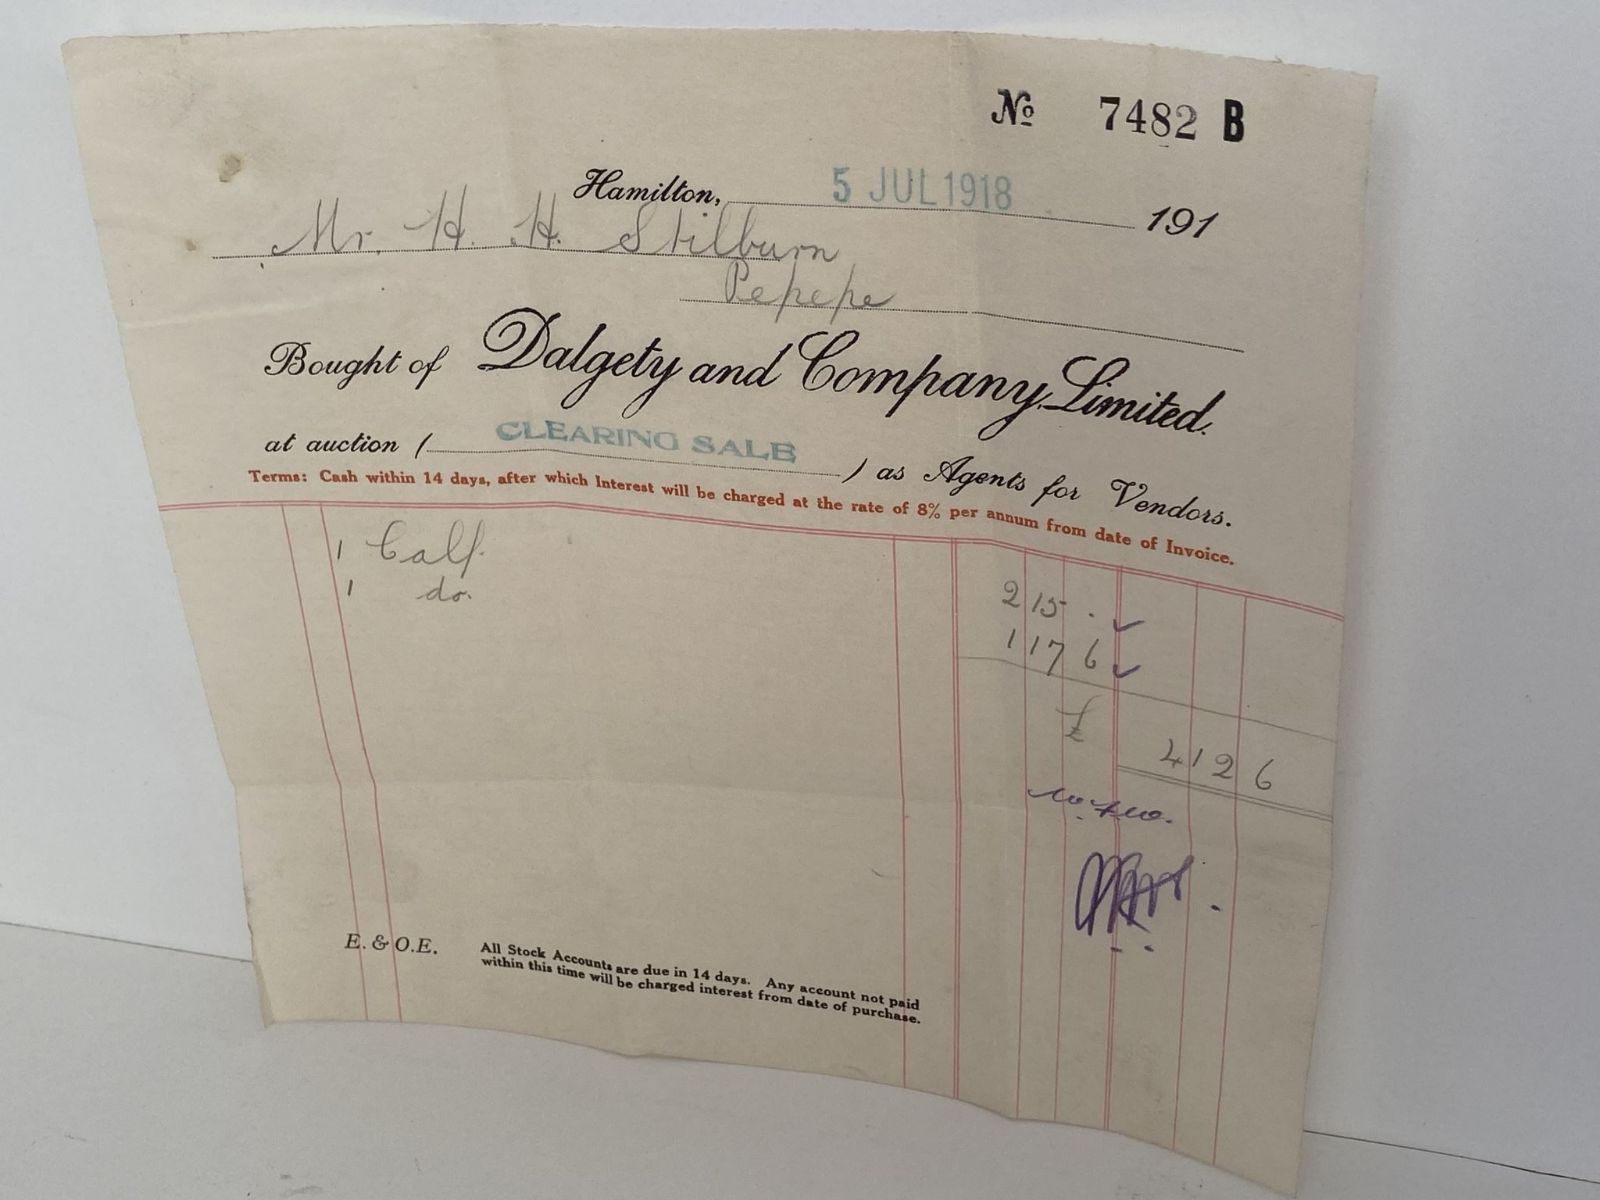 No 7482 B
Hamilton, 5 JUL 1918 191
Mr. H. H. Stilburn
Pepepe
Bought of Dalgety and Company, Limited.
at auction ( CLEARING SALE ) as Agents for Vendors.
Terms: Cash within 14 days, after which Interest will be charged at the rate of 8% per annum from date of Invoice.
1 Calf. 2 15 .
1 do. 1 17 6
£ 4 12 6
E. & O.E.
All Stock Accounts are due in 14 days. Any account not paid
within this time will be charged interest from date of purchase.